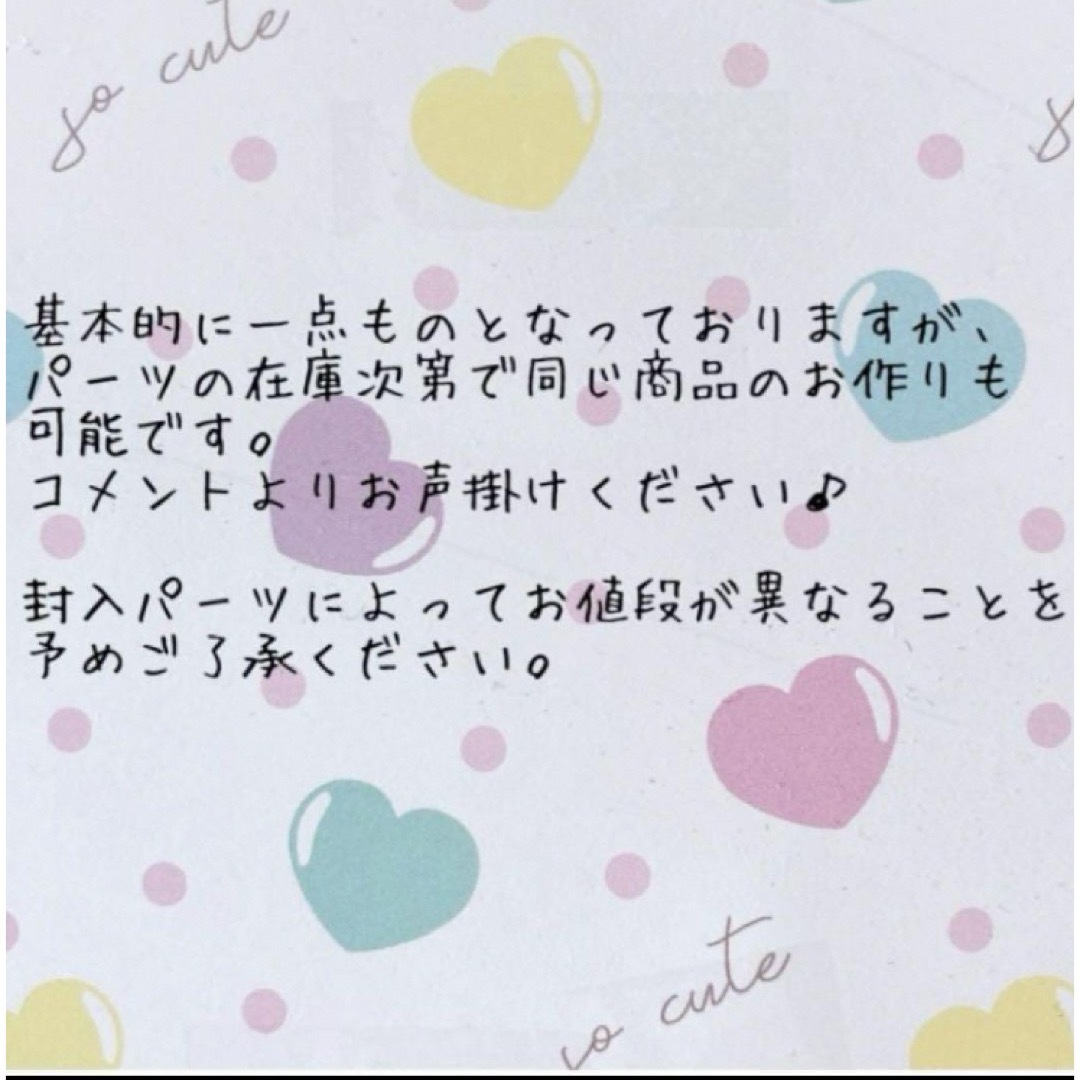 so cute
基本的に一点ものとなっておりますが、
パーツの在庫次第で同じ商品のお作りも
可能です。
コメントよりお声掛けください♪
封入パーツによってお値段が異なることを
予めご了承ください。
so cute